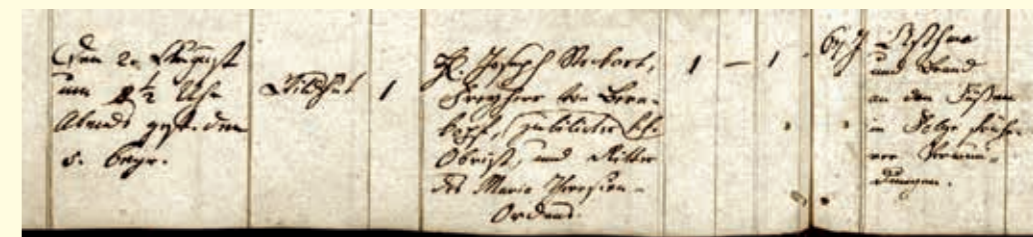 Den 2. August
um 8 1/2 Uhr
Abends gest. den
5. begr.
1
H. Joseph
Freyherr von
Obrist, und Ritter
des Maria Theresien-
Ordens.
1 — 1
67 J
Asthma
und Brand
an den Füßen
in Folge frühe-
rer Verwun-
dungen.